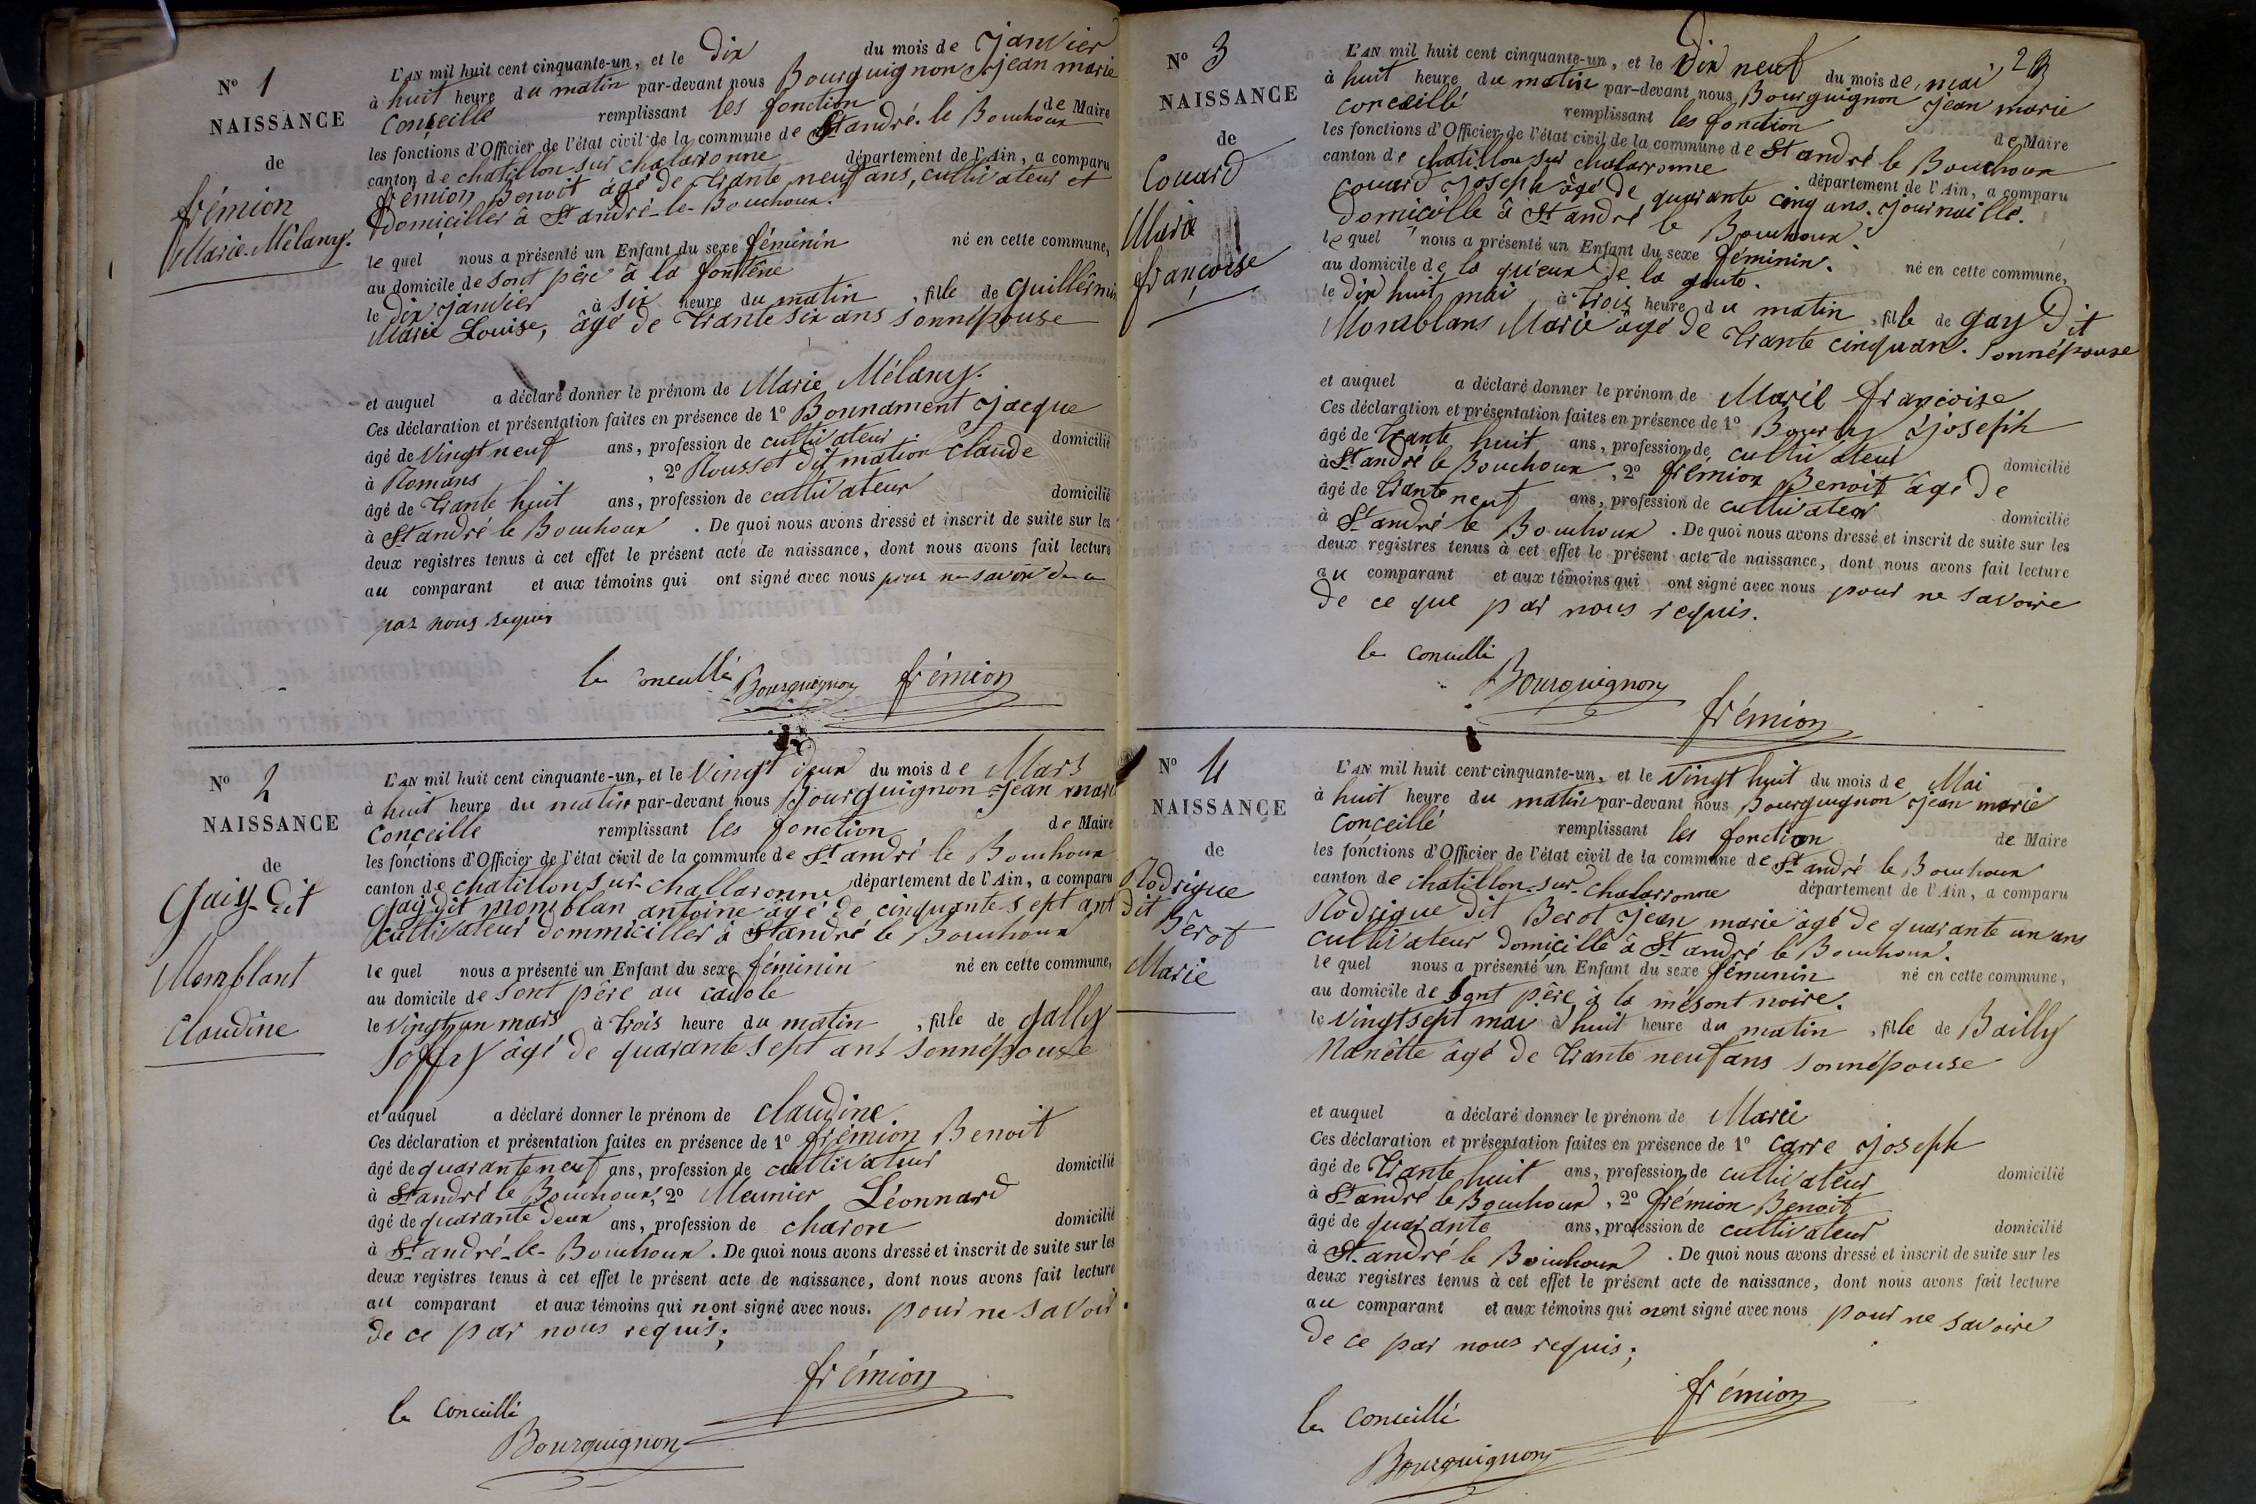 N° 1
NAISSANCE
de
frémion
Marie Mélany.
L'AN mil huit cent cinquante-un, et le Dix du mois de Janvier
à huit heure du matin par-devant nous Bourguignon Jean marie
Conseillé remplissant les fonction de Maire
les fonctions d'Officier de l'état civil de la commune de St andré le Bouchoux
canton de chatillon sur chalaronne département de l'Ain, a comparu
frémion Benoit âgé de trante neuf ans, cultivateur et
Domiciller à St andré-le-Bouchoux.
le quel nous a présenté un Enfant du sexe féminin né en cette commune,
au domicile de sont père à la fontêne
le Dix Janvier à six heure du matin , fille de Guillêmin
Marie Louise, âgé de trante six ans sonnépouse
et auquel a déclaré donner le prénom de Marie Mélany.
Ces déclaration et présentation faites en présence de 1° Bonnament Jacque
âgé de vingt neuf ans, profession de cultivateur domicilié
à Romans , 2° Rousset dit mation Claude
âgé de trante huit ans, profession de cultivateur domicilié
à St andré le Bouchoux . De quoi nous avons dressé et inscrit de suite sur les
deux registres tenus à cet effet le présent acte de naissance, dont nous avons fait lecture
au comparant et aux témoins qui ont signé avec nous pour ne savoir de ce
par nous requis
le conceillé Bourguignon frémion
N° 2
NAISSANCE
de
Gaiy-Dit
Momblant
Claudine
L'AN mil huit cent cinquante-un, et le Vingt deux du mois de Mars
à huit heure du matin par-devant nous Bourguignon Jean mari
Conçeille remplissant les fonction de Maire
les fonctions d'Officier de l'état civil de la commune de St andré le Bouchoux
canton de chatillon sur challaronne département de l'Ain, a comparu
Gay dit momblan antoine âgé de cinquante sept ant
cultivateur dommiciller à St andré le Bouchoux
le quel nous a présenté un Enfant du sexe féminin né en cette commune,
au domicile de sont père au cadole
le vingt un mars à trois heure du matin , fille de Gally
Soffly âgé de quarante sept ans sonnépouse
et auquel a déclaré donner le prénom de claudine
Ces déclaration et présentation faites en présence de 1° frémion Benoit
âgé de quarante neuf ans, profession de cultivateur domicilié
à St andré le Bouchoux, 2° Meunier Léonnard
âgé de quarante deux ans, profession de charon domicilié
à St andré-le-Bouchoux . De quoi nous avons dressé et inscrit de suite sur les
deux registres tenus à cet effet le présent acte de naissance, dont nous avons fait lecture
au comparant et aux témoins qui nont signé avec nous. pour ne savoir
de ce par nous requis;
frémion
le Conceillé
Bourguignon
23
N° 3
NAISSANCE
de
Couard
Marie
françoise
L'AN mil huit cent cinquante-un, et le Dix neuf du mois de mai
à huit heure du matin par-devant nous Bourguignon Jean marie
Conceillé remplissant les fonction de Maire
les fonctions d'Officier de l'état civil de la commune de St andré le Bouchoux
canton de chatillon sur chalarronne département de l'Ain, a comparu
Couard Joseph âgé de quarante cinq ans. Journaillé.
Domicille à St andré le Bouchoux.
le quel nous a présenté un Enfant du sexe féminin. né en cette commune,
au domicile de la queux de la goute.
le dix huit mai à trois heure du matin , fille de gay Dit
Momblans Marie âgé de trante cinquan. Sonnépouse
et auquel a déclaré donner le prénom de Marie françoise
Ces déclaration et présentation faites en présence de 1° Joseph
âgé de trante huit ans, profession de cultivateur domicilié
à St andré le Bouchoux , 2° frémion Benoit âgé de
âgé de trante neuf ans, profession de cultivateur domicilié
à St andré le Bouchoux . De quoi nous avons dressé et inscrit de suite sur les
deux registres tenus à cet effet le présent acte de naissance, dont nous avons fait lecture
au comparant et aux témoins qui ont signé avec nous pour ne savoire
de ce que par nous requis.
le conceillé
Bourguignon
frémion
N° 4
NAISSANCE
de
Rodrigue
dit
Bérot
Marie
L'AN mil huit cent cinquante-un, et le Vingt huit du mois de Mai
à huit heure du matin par-devant nous Bourguignon Jean marie
Conçeillé remplissant les fonction de Maire
les fonctions d'Officier de l'état civil de la commune de St andré le Bouchoux
canton de chatillon-sur-chalarronne département de l'Ain, a comparu
Rodrigue Dit Berot Jean marie âgé de quarante un ans
cultivateur domicillé à St andré le Bouchoux.
le quel nous a présenté un Enfant du sexe féminin né en cette commune,
au domicile de sont père à la mésont noire.
le Vingt sept mai à huit heure du matin , fille de Bailly
Nanêtte âgé de trante neuf ans sonnépouse
et auquel a déclaré donner le prénom de Marie
Ces déclaration et présentation faites en présence de 1° carre Joseph
âgé de trante huit ans, profession de cultivateur domicilié
à St andré le Bouchoux , 2° frémion Benoit
âgé de quarante ans, profession de cultivateur domicilié
à St andré le Bouchoux . De quoi nous avons dressé et inscrit de suite sur les
deux registres tenus à cet effet le présent acte de naissance, dont nous avons fait lecture
au comparant et aux témoins qui nont signé avec nous pour ne savoire
de ce par nous requis;
frémion
le conceillé
Bourguignon